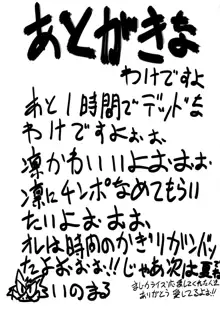 あとがきな
わけですよ
あと1時間でデッドな
わけですよぉぉ
凛かわいいよぉぉぉ
凛にチンポなめてもらい
たいよぉぉぉ
オレは時間のかぎりガンバッ
たよぉぉぉ!! じゃあ次は夏
いのまる
応援してくれた人
ありがとう 愛してるよぉ!!